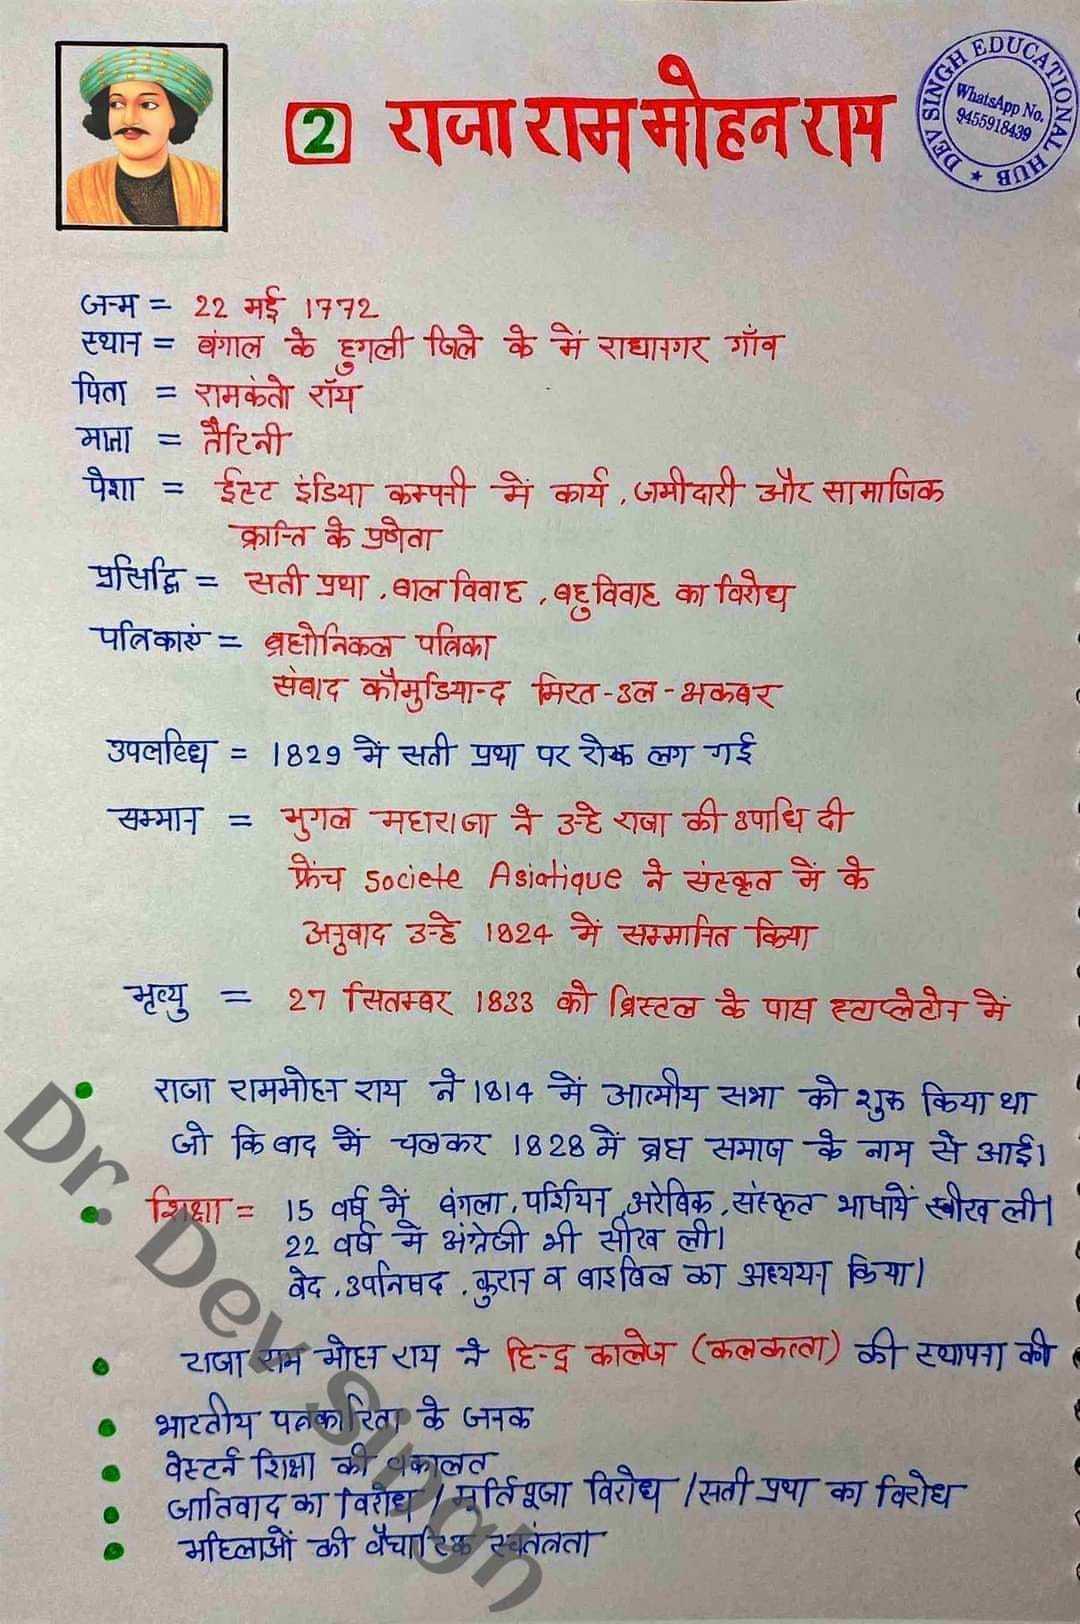 2 राजा राम मोहन राय
DEV SINGH EDUCATIONAL HUB ★
WhatsApp No.
9455918439
जन्म = 22 मई 1772
स्थान = बंगाल के हुगली जिले के में राधानगर गाँव
पिता = रामकंतो रॉय
माता = तैरिनी
पेशा = ईस्ट इंडिया कम्पनी में कार्य, जमीदारी और सामाजिक
क्रान्ति के प्रणेता
प्रसिद्धि = सती प्रथा, बाल विवाह, बहु विवाह का विरोध
पत्रिकाएं = ब्रह्मोनिकल पत्रिका
संवाद कौमुडियान्द मिरत-उल-अकबर
उपलब्धि = 1829 में सती प्रथा पर रोक लग गई
सम्मान = मुगल महाराजा ने उन्हे राजा की उपाधि दी
फ्रेंच Societe Asiatique ने संस्कृत में के
अनुवाद उन्हे 1824 में सम्मानित किया
मृत्यु = 27 सितम्बर 1833 को ब्रिस्टल के पास स्टाप्लेटोन में
राजा राममोहन राय ने 1814 में आत्मीय सभा को शुरू किया था
जो कि बाद में चलकर 1828 में ब्रह्म समाज के नाम से आई।
शिक्षा = 15 वर्ष में बंगला, पर्शियन, अरेबिक, संस्कृत भाषायें सीख ली।
22 वर्ष में अंग्रेजी भी सीख ली।
वेद, उपनिषद, कुरान व बाइबिल का अध्ययन किया।
राजा राम मोहन राय ने हिन्दू कालेज (कलकत्ता) की स्थापना की
भारतीय पत्रकारिता के जनक
वेस्टर्न शिक्षा की वकालत
जातिवाद का विरोध / मूर्तिपूजा विरोध / सती प्रथा का विरोध
महिलाओं की वैचारिक स्वतंत्रता
Dr. Dev Singh